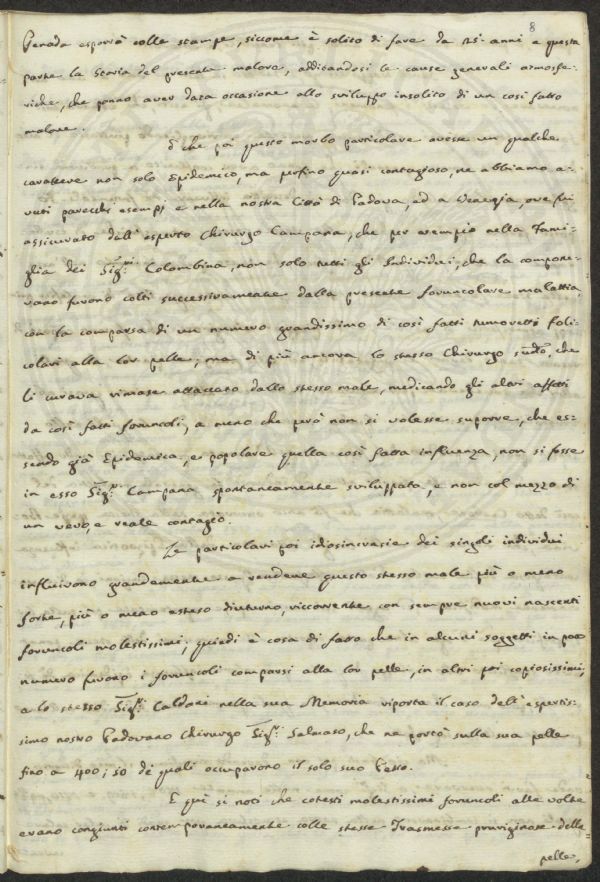 8
Penada esporrà colle stampe, siccome è solito di fare da 25. anni a questa
parte la Storia del presente malore, additandosi le cause generali atmosfe-
riche, che ponno aver data occasione allo sviluppo insolito di un così fatto
malore.
E che poi questo morbo particolare avesse un qualche
carattere non solo Epidemico, ma perfino quasi contagioso, ne abbiamo a-
vuti parecchi esempj e nella nostra Città di Padova, ed a Venezia, ove fui
assicurato dall' esperto Chirurgo Campana, che per esempio nella Fami-
glia dei Sigri. Colombina, non solo tutti gli Individui, che la compone-
vano furono colti successivamente dalla presente foruncolare malattia,
con la comparsa di un numero grandissimo di così fatti tumoretti foli-
colari alla lor pelle; ma di più ancora lo stesso Chirurgo sudto, che
li curava rimase attaccato dallo stesso male, medicando gli altri affetti
da così fatti foruncoli, a meno che però non si volesse suporre, che es-
sendo già Epidemica, e popolare quella così fatta influenza, non si fosse
in esso Sigr. Campana spontaneamente sviluppata, e non col mezzo di
un vero, e reale contagio.
Le particolari poi idiosincrasie dei singoli individui
influirono grandemente a rendere questo stesso male più o meno
forte, più o meno esteso diuturno, riccorrente con sempre nuovi nascenti
foruncoli molestissimi; quindi è cosa di fatto che in alcuni soggetti in poco
numero furono i foruncoli comparsi alla lor pelle, in altri poi copiosissimi;
a lo stesso Sigr. Caldani nella sua Memoria riporta il caso dell' espertis-
simo nostro Padovano Chirurgo Sigr. Salmaso, che ne portò sulla sua pelle
fino a 400; 50 de quali occuparono il solo suo Petto.
E quì si noti che cotesti molestissimi foruncoli alle volte
erano congiunti contemporaneamente colle stesse Trasmesse pruriginose della
pelle,